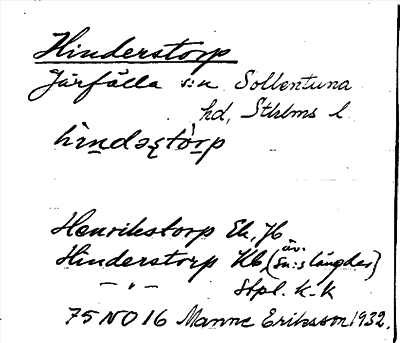 Hinderstorp
Järfälla s:n Sollentuna
hd, Sthlms l
Henrikstorp Ek, Hb
Hinderstorp Kb, (äv. sn:s längder)
— " — Stpl. k-k
75 NO 16 Manne Eriksson 1932.